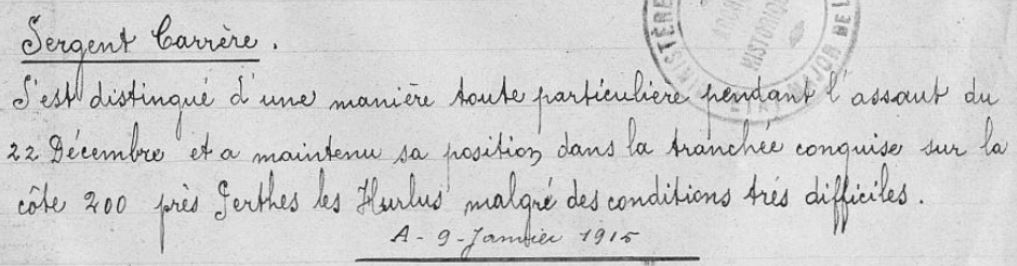 Sergent Carrère.
MINISTÈRE
HISTORIQUE
MAJOR DE L
S'est distingué d'une manière toute particulière pendant l'assaut du
22 Décembre et a maintenu sa position dans la tranchée conquise sur la
côte 200 près Perthes les Hurlus malgré des conditions trés difficiles.
A - 9 - Janvier 1915